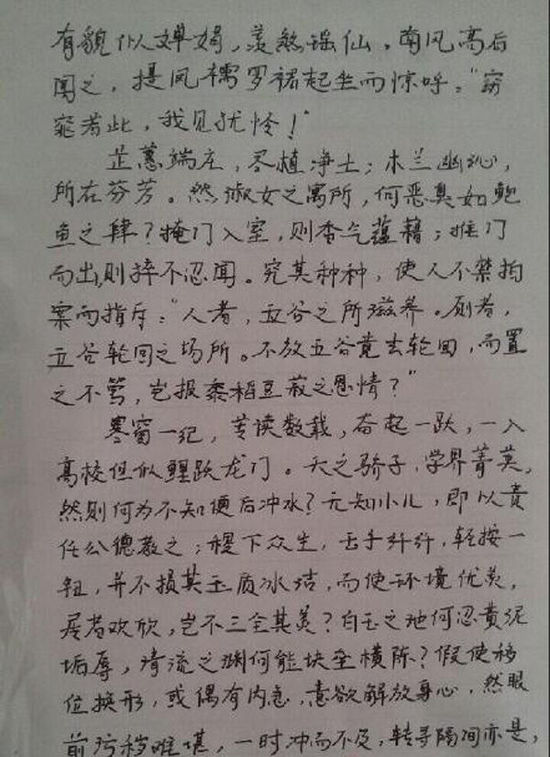 有貌似婵娟,羡煞瑶仙。南风高后
闻之,提凤襦罗裙起坐而惊呼:“窈
窕若此,我见犹怜!”
芷蕙端庄,尽植净土;木兰幽沁,
所在芬芳。然淑女之寓所,何恶臭如鲍
鱼之肆?掩门入室,则香气蕴藉;推门
而出,则猝不忍闻。究其种种,使人不禁拍
案而指斥:“人者,五谷之所滋养。厕者,
五谷轮回之场所。不放五谷竟去轮回,而置
之不管,岂报黍稻豆菽之恩情?”
寒窗一纪,苦读数载,奋起一跃,一入
高校但似鲤跃龙门。天之骄子,学界菁英,
然则何为不知便后冲水?无知小儿,即以责
任公德教之;稷下众生,玉手纤纤,轻按一
钮,并不损其玉质冰洁,而使环境优美,
居者欢欣,岂不三全其美?白玉之池何忍黄泥
垢辱,清流之渊何能块垒横陈?假使移
位换形,或偶有内急,意欲解放身心,然眼
前污秽难堪,一时冲而不及,转寻隔间亦是,